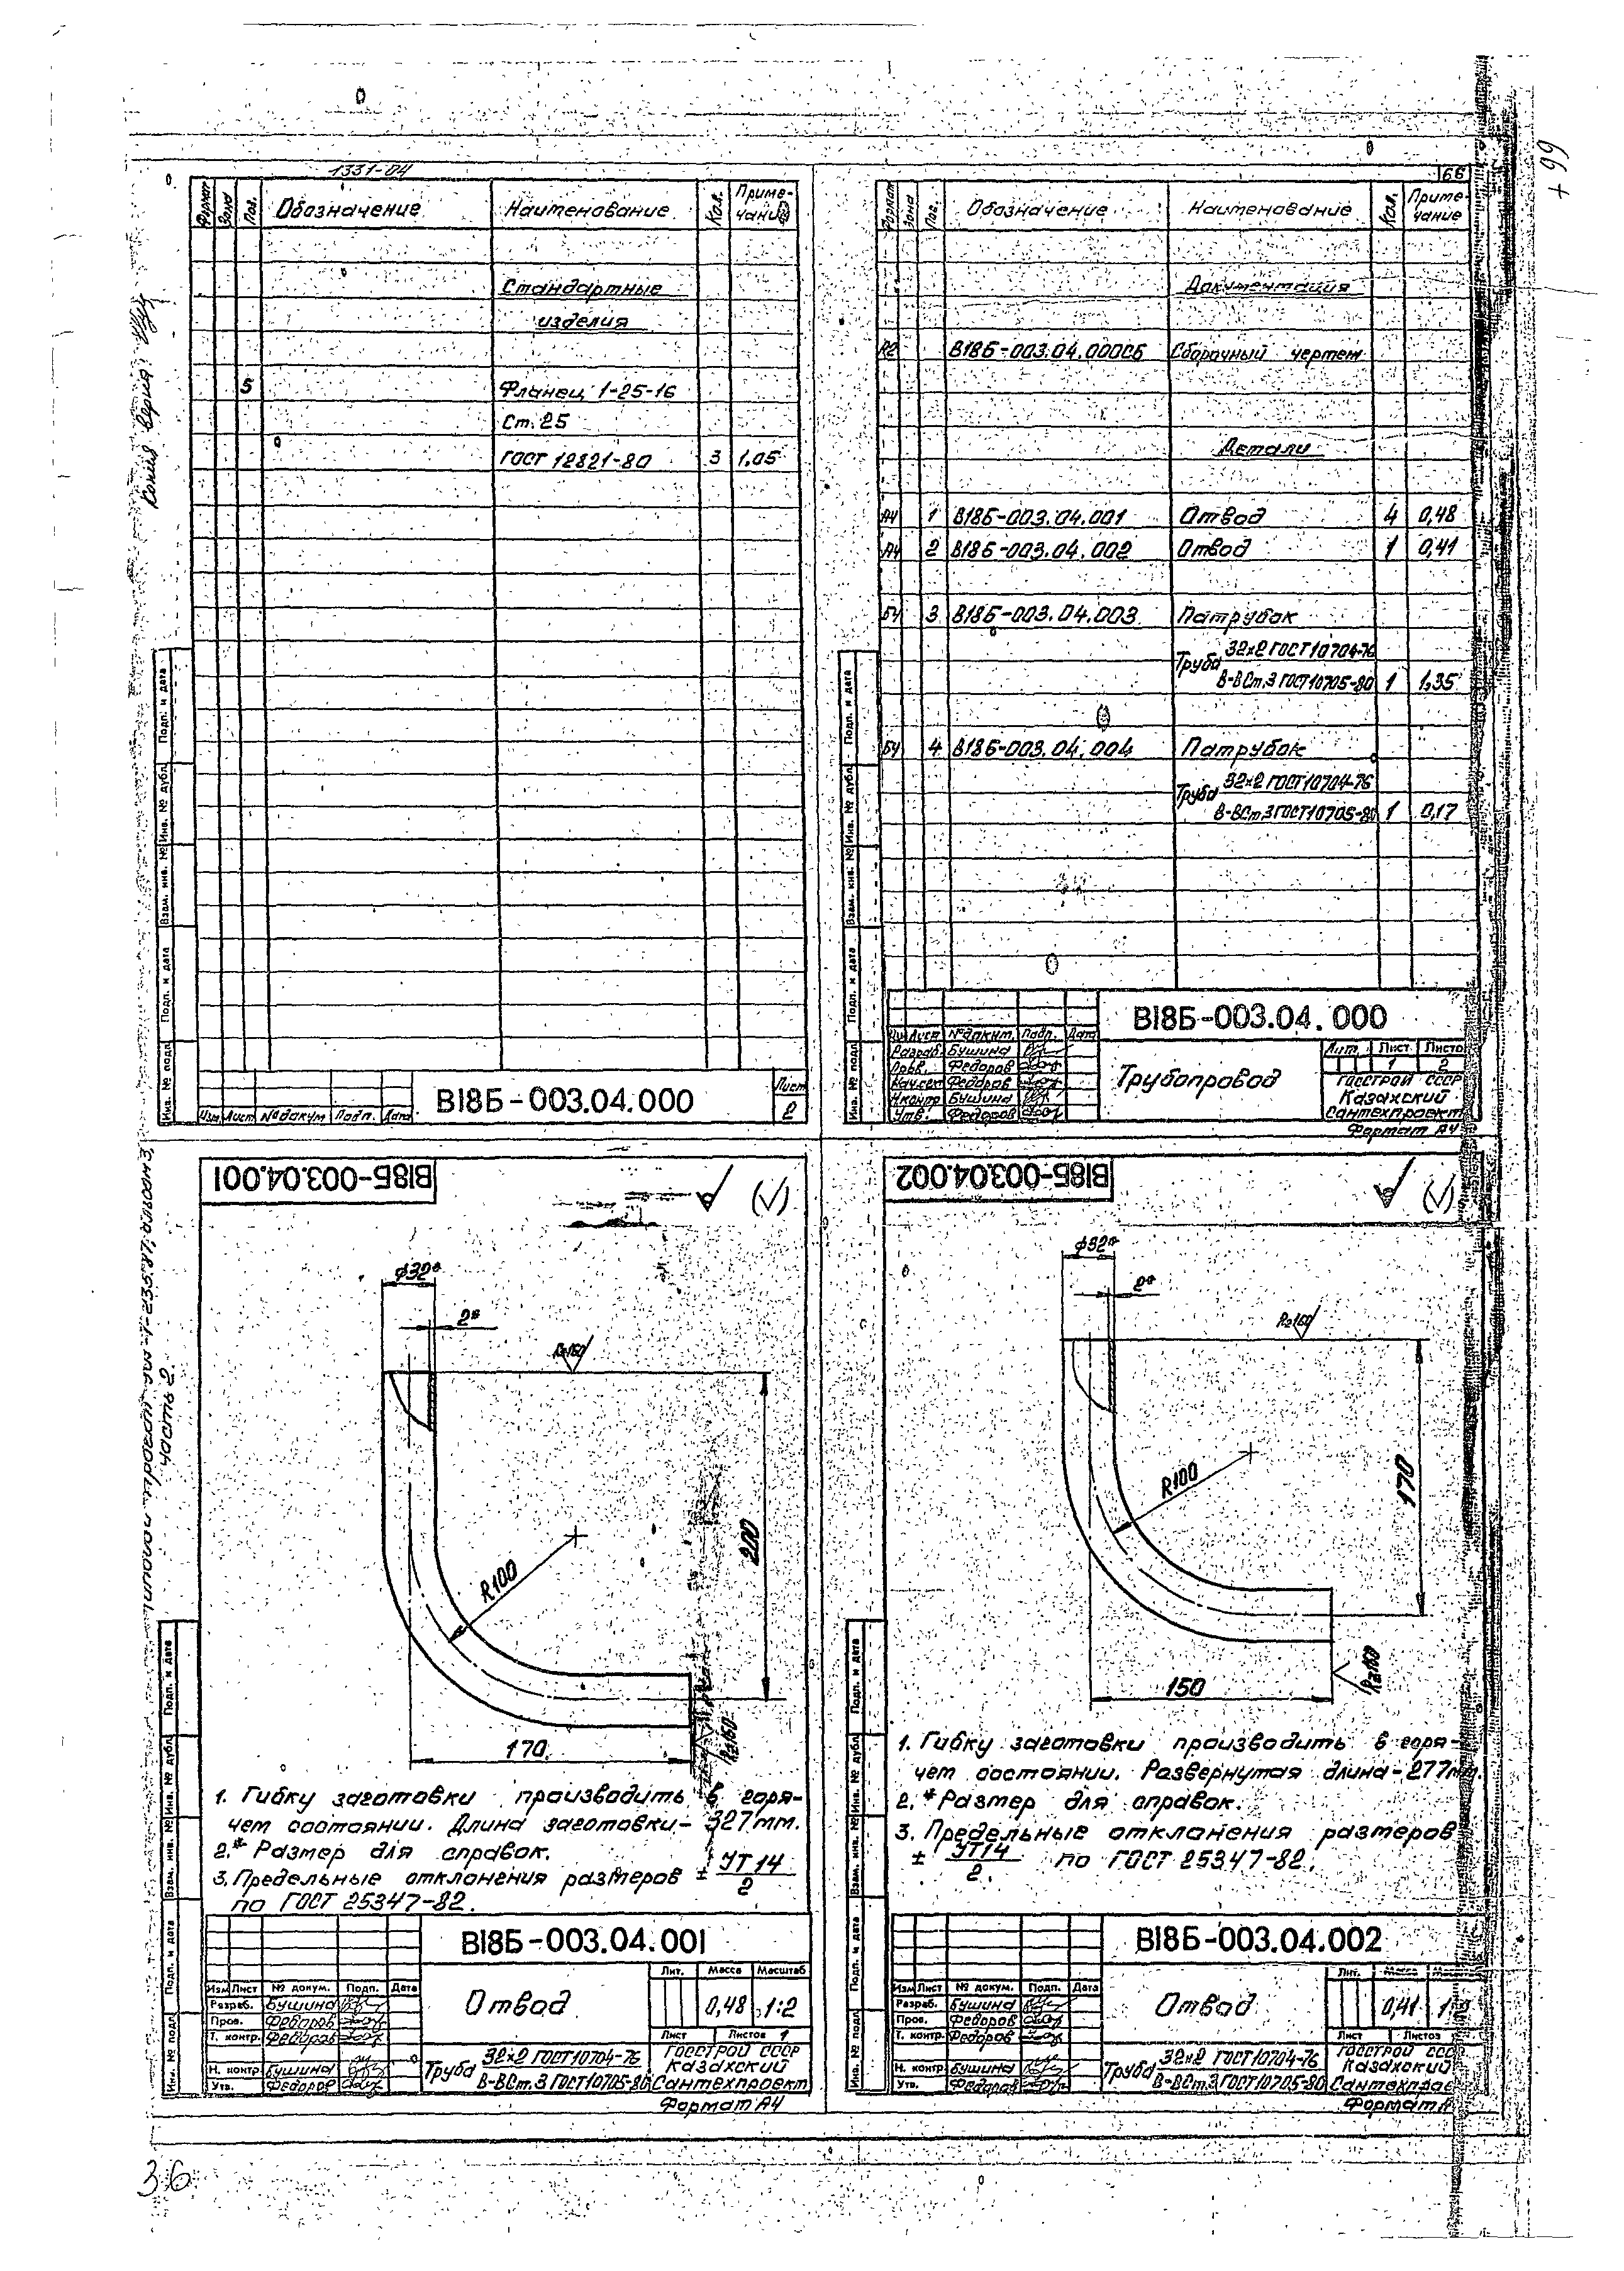 1331-04
66
66 +
Формат Зона Поз. Обозначение Наименование Кол. Приме-чание
Стандартные
изделия
5 Фланец 1-25-16
Ст. 25
ГОСТ 12821-80 3 1,05
Подп. и дата
Инв. № дубл.
Взам. инв. №
Подп. и дата
Инв. № подл.
Изм Лист № докум Подп. Дата
В18Б-003.04.000
Лист
2
Формат Зона Поз. Обозначение Наименование Кол. Приме-чание
Документация
А2 В18Б-003.04.000СБ Сборочный чертеж
Детали
А4 1 В18Б-003.04.001 Отвод 4 0,48
А4 2 В18Б-003.04.002 Отвод 1 0,41
БЧ 3 В18Б-003.04.003 Патрубок
Труба 32×2 ГОСТ 10704-76
В-ВСт.3 ГОСТ 10705-80 1 1,35
БЧ 4 В18Б-003.04.004 Патрубок
Труба 32×2 ГОСТ 10704-76
В-ВСт.3 ГОСТ 10705-80 1 0,17
Подп. и дата
Инв. № дубл.
Взам. инв. №
Подп. и дата
Инв. № подл.
В18Б-003.04.000
Изм Лист № докум. Подп. Дата
Разраб. Бушина
Пров. Федоров
Нач.сек Федоров
Н.контр Бушина
Утв. Федоров
Трубопровод
Лит. Лист Листо
1 2
Госстрой СССР
Казахский
Сантехпроект
Формат А4
В18Б-003.04.001
(√)
ф32*
2*
Rz160
200
R100
Rz160
170
1. Гибку заготовки производить в горя-
чем состоянии. Длина заготовки- 327мм.
2.* Размер для справок.
3. Предельные отклонения размеров ± УТ14/2
по ГОСТ 25347-82.
Подп. и дата
Инв. № дубл.
Взам. инв. №
Подп. и дата
Инв. № подл.
В18Б-003.04.001
Изм Лист № докум. Подп. Дата
Разраб. Бушина
Пров. Федоров
Т. контр. Федоров
Н. контр. Бушина
Утв. Федоров
Отвод
Лит. Масса Масштаб
0,48 1:2
Лист Листов 1
Труба 32×2 ГОСТ 10704-76
В-ВСт.3 ГОСТ 10705-80
Госстрой СССР
Казахский
Сантехпроект
Формат А4
В18Б-003.04.002
(√)
ф32*
2*
Rz160
170
R100
Rz160
150
1. Гибку заготовки производить в горя-
чем состоянии. Развернутая длина-277мм.
2.* Размер для справок.
3. Предельные отклонения размеров
± УТ14/2 по ГОСТ 25347-82.
Подп. и дата
Инв. № дубл.
Взам. инв. №
Подп. и дата
Инв. № подл.
В18Б-003.04.002
Изм Лист № докум. Подп. Дата
Разраб. Бушина
Пров. Федоров
Т. контр. Федоров
Н. контр. Бушина
Утв. Федоров
Отвод
Лит. Масса
0,41 1:2
Лист Листов
Труба 32×2 ГОСТ 10704-76
В-ВСт.3 ГОСТ 10705-80
Госстрой СССР
Казахский
Сантехпрое
Формат А
Копия верна:
часть 2.
36